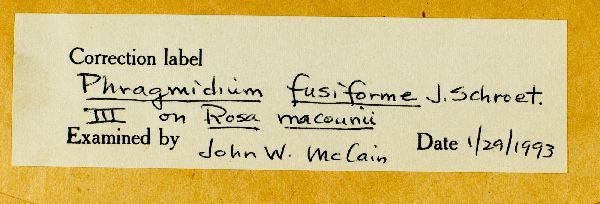 Correction label
Phragmidium fusiforme J. Schroet.
III on Rosa macounii
Examined by John W. McCain Date 1/29/1993